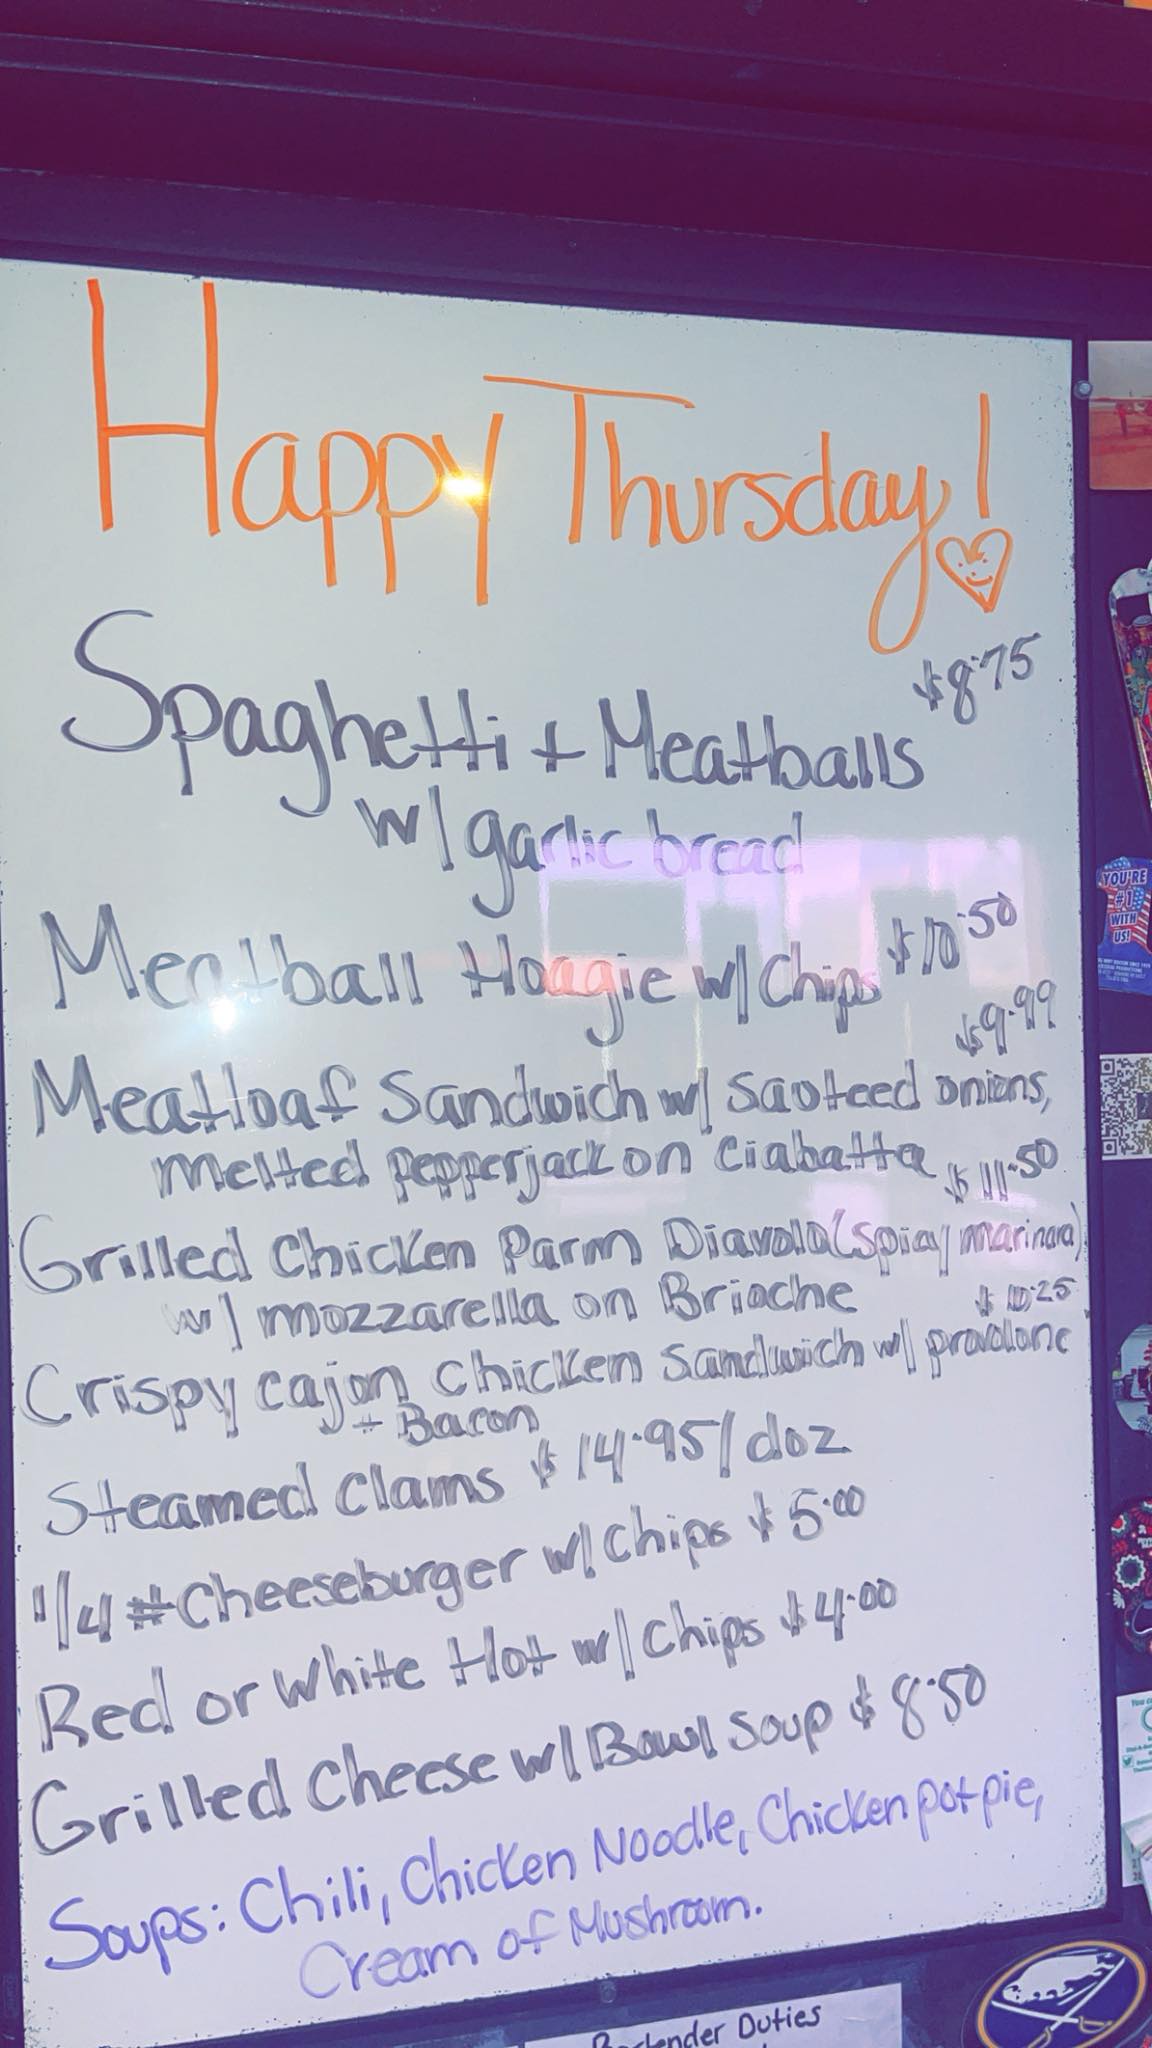 Happy Thursday!
$8.75
Spaghetti + Meatballs
w/ garlic bread
Meatball Hoagie w/ Chips $10.50
$9.99
Meatloaf Sandwich w/ Sauteed onions,
melted pepperjack on Ciabatta
$11.50
Grilled Chicken Parm Diavolo (spicy marinara)
w/ mozzarella on Brioche
$10.25
Crispy Cajon Chicken Sandwich w/ provolone
+ Bacon
Steamed Clams $14.95/doz
1/4 # Cheeseburger w/ Chips $5.00
Red or White Hot w/ Chips $4.00
Grilled Cheese w/ Bowl Soup $8.50
Soups: Chili, Chicken Noodle, Chicken pot pie,
Cream of Mushroom.
YOU'RE
#1
WITH
US!
Bartender Duties